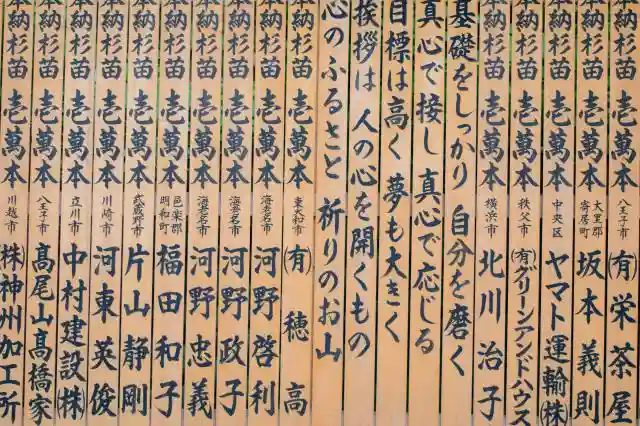 奉納杉苗 壱萬本 八王子市 ㈲栄茶屋
奉納杉苗 壱萬本 大里郡寄居町 坂本義則
奉納杉苗 壱萬本 中央区 ヤマト運輸㈱
奉納杉苗 壱萬本 秩父市 ㈲グリーンアンドハウス
奉納杉苗 壱萬本 横浜市 北川治子
基礎をしっかり 自分を磨く
真心で接し 真心で応じる
目標は高く 夢も大きく
挨拶は 人の心を開くもの
心のふるさと 祈りのお山
奉納杉苗 壱萬本 東大和市 ㈲穂高
奉納杉苗 壱萬本 海老名市 河野啓利
奉納杉苗 壱萬本 海老名市 河野政子
奉納杉苗 壱萬本 海老名市 河野忠義
奉納杉苗 壱萬本 邑楽郡明和町 福田和子
奉納杉苗 壱萬本 武蔵野市 片山静剛
奉納杉苗 壱萬本 川崎市 河東英俊
奉納杉苗 壱萬本 立川市 中村建設㈱
奉納杉苗 壱萬本 八王子市 髙尾山髙橋家
奉納杉苗 壱萬本 川越市 ㈱神州加工所